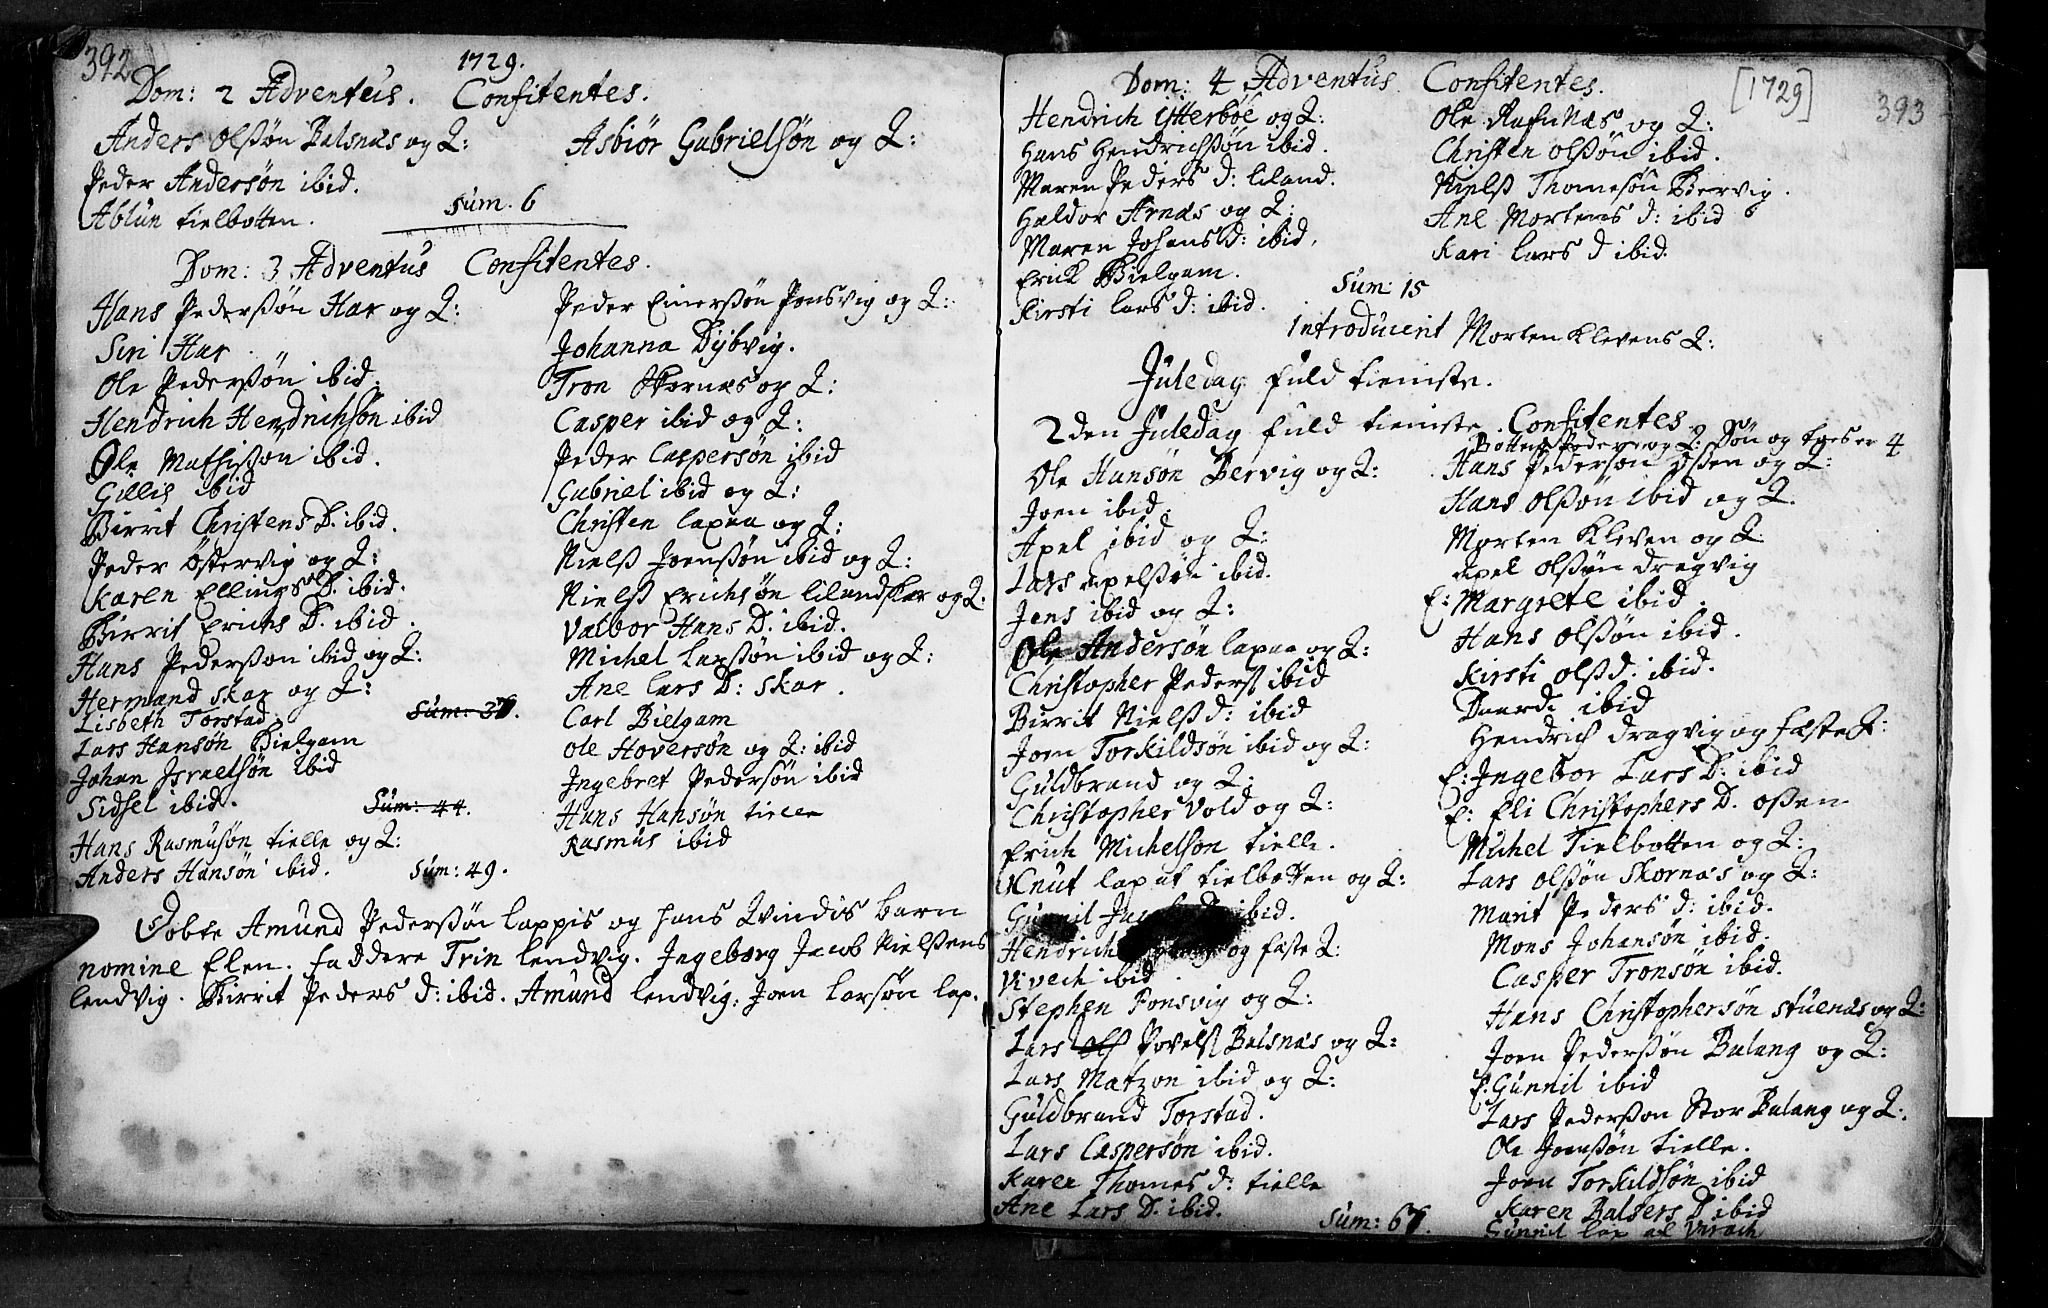 392
1729.
Dom: 2 Adventus. Confitentes.
Anders Olßøn Balsnæs og Q:
Peder Andersøn ibid.
Ablun tielbotten.
Asbiør Gabrielsøn og Q:
Sum. 6
Dom: 3 Adventus Confitentes.
Hans Pederßøn Har og Q:
Siri Har
Ole Pederßøn ibid.
Hendrich Hendrichsøn ibid
Ole Mathisßøn ibid.
Gillis ibid
Birrit Christens D. ibid.
Peder Østervig og Q:
Karen Ellings D. ibid.
Birrit Erichs D. ibid.
Hans Pederßøn ibid og Q:
Hermand skar og Q:
Lisbeth Torstad.
Sum: 37.
Lars Hansøn Bielgam
Johan Israelsøn ibid
Sidsel ibid.
Sum: 44.
Hans Rasmusøn tielle og Q:
Anders Hansøn ibid.
Sum: 49.
Peder Einerßøn Ponsvig og Q:
Johanna Dybvig.
Tron Skornæs og Q:
Casper ibid og Q:
Peder Caspersøn ibid
Gabriel ibid og Q:
Christen lapaa og Q:
Nielß Joenßøn ibid og Q:
Nielß Erichsøn lilandskar og Q.
Valbor Hans D. ibid.
Michel Larßøn ibid og Q:
Ane Lars D: skar.
Carl Bielgam
Ole Hoversøn og Q: ibid
Ingebret Pedersøn ibid
Hans Hansøn tielle
Rasmus ibid
Døbte Amund Pederßøn lappis og hans Qvindis barn
nomine Elen. faddere Trin lendvig. Ingeborg Jacob Nielßens
lendvig. Birrit Peders d: ibid. Amund lendvig. Joen Larsøn lap.
Dom: 4 Adventus Confitentes.
[1729]
393
Hendrich ytterbøe og Q:
Hans Hendrichßøn ibid.
Maren Peders d: liland.
Haldor Arnæs og Q:
Maren Johans d: ibid.
Erick Bielgam.
Kirsti Lars d: ibid.
Ole Rafnnæs og Q:
Christen Olßøn ibid.
Nielß Thomesøn Bervig.
Ane Mortens d: ibid
Kari Lars d ibid.
Sum: 15
Introducerit Morten Klevens Q:
Juledag fuld tieniste.
2den Juledag fuld tieniste. Confitentes
Ole Hansøn Bervig og Q:
Joen ibid.
Axel ibid og Q:
Lars Axelßøn ibid.
Jens ibid og Q:
Ole Andersøn lapaa og Q:
Christopher Pederß ibid
Birrit Nielß d: ibid
Joen Torkildsøn ibid og Q:
Guldbrand og Q:
Christopher Vold og Q:
Erich Michelsøn tielle.
Knut lap at tielbotten og Q:
Gunnil ibid.
Hendrich og fæste Q:
Vivech ibid.
Stephen Ponsvig og Q:
Lars Povelß Balsnæs og Q:
Lars Matzon ibid og Q:
Guldbrand Torstad.
Lars Caspersøn ibid.
Karen Thomes d: tielle
Ane Lars D. ibid.
Hans Pedersøn Oßen og Q:
Hans Olßøn ibid og Q.
Morten Kleven og Q
Axel Olßøn dragvig
E: Margrete ibid.
Hans Olßøn ibid.
Kirsti Olß d: ibid.
Daarde ibid
Hendrich dragvig og fæste Q:
E: Ingebor Lars D: ibid
E: Eli Christophers D. Oßen
Michel Tielbotten og Q:
Lars Olßøn Skornæs og Q:
Marit Peders d: ibid.
Mons Johansøn ibid.
Casper Tronsøn ibid.
Hans Christophersøn stuenæs og Q:
Joen Pederßøn Balang og Q:
E: Gunnil ibid
Lars Pederßøn Stor Balang og Q:
Ole Joenßøn tielle.
Joen Torkildsøn ibid
Karen Balsers D ibid
Sum: 67.